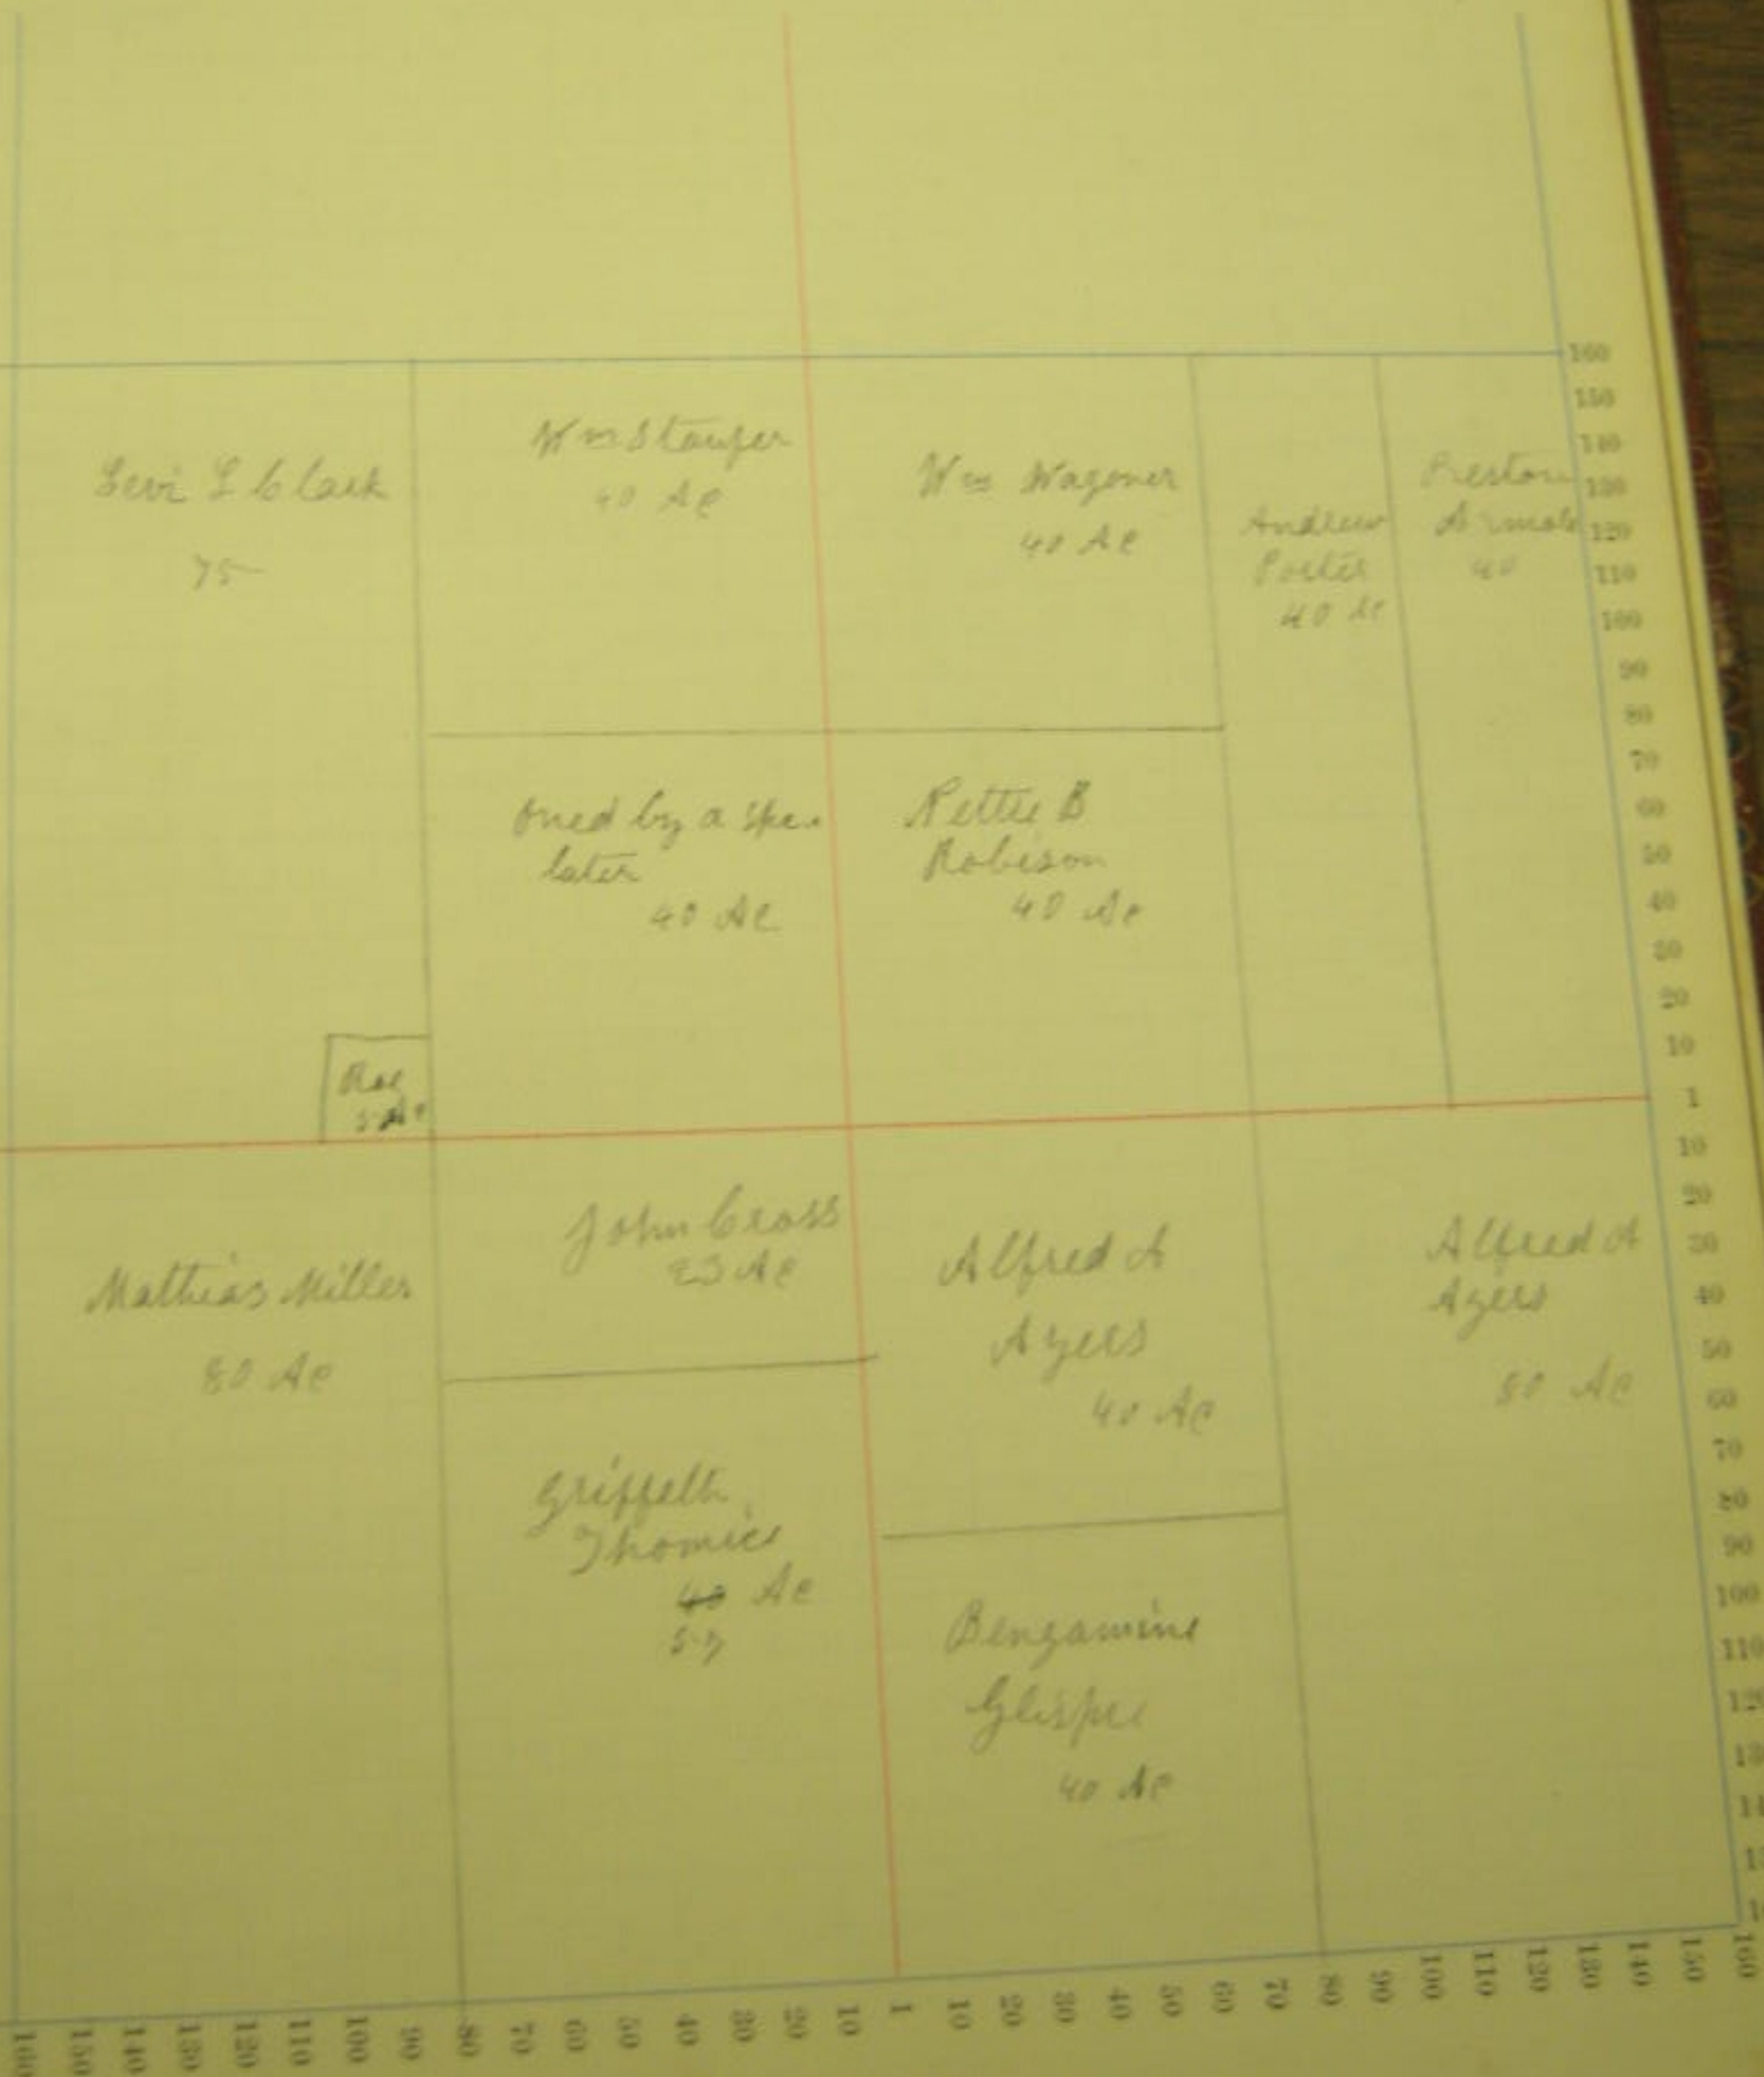 Levi L Clark
75
Wm Staufer
40 Ac
Wm Wagoner
40 Ac
Andrew
Porter
40 Ac
Preston
40
oned by a Spec
later
40 Ac
Nettie B
Robison
40 Ac
5 Ac
Mathias Miller
80 Ac
John Cross
23 Ac
Griffeth
Thomics
40 Ac
57
Alfred A
Ayers
40 Ac
Bengamine
Glispie
40 Ac
Alfred A
Ayers
80 Ac
160
150
140
130
120
110
100
90
80
70
60
50
40
30
20
10
1
10
20
30
40
50
60
70
80
90
100
110
160
150
140
130
120
110
100
90
80
70
60
50
40
30
20
10
1
10
20
30
40
50
60
70
80
90
100
110
120
130
140
150
160